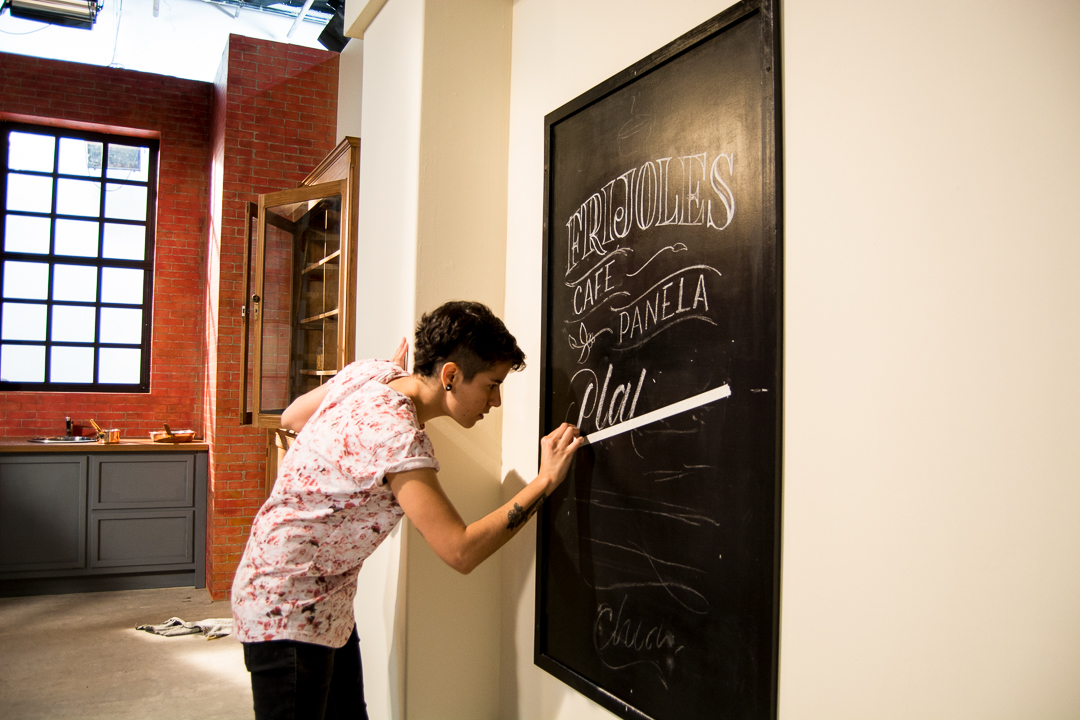 FRIJOLES
CAFE
PANELA
Pla
Chia